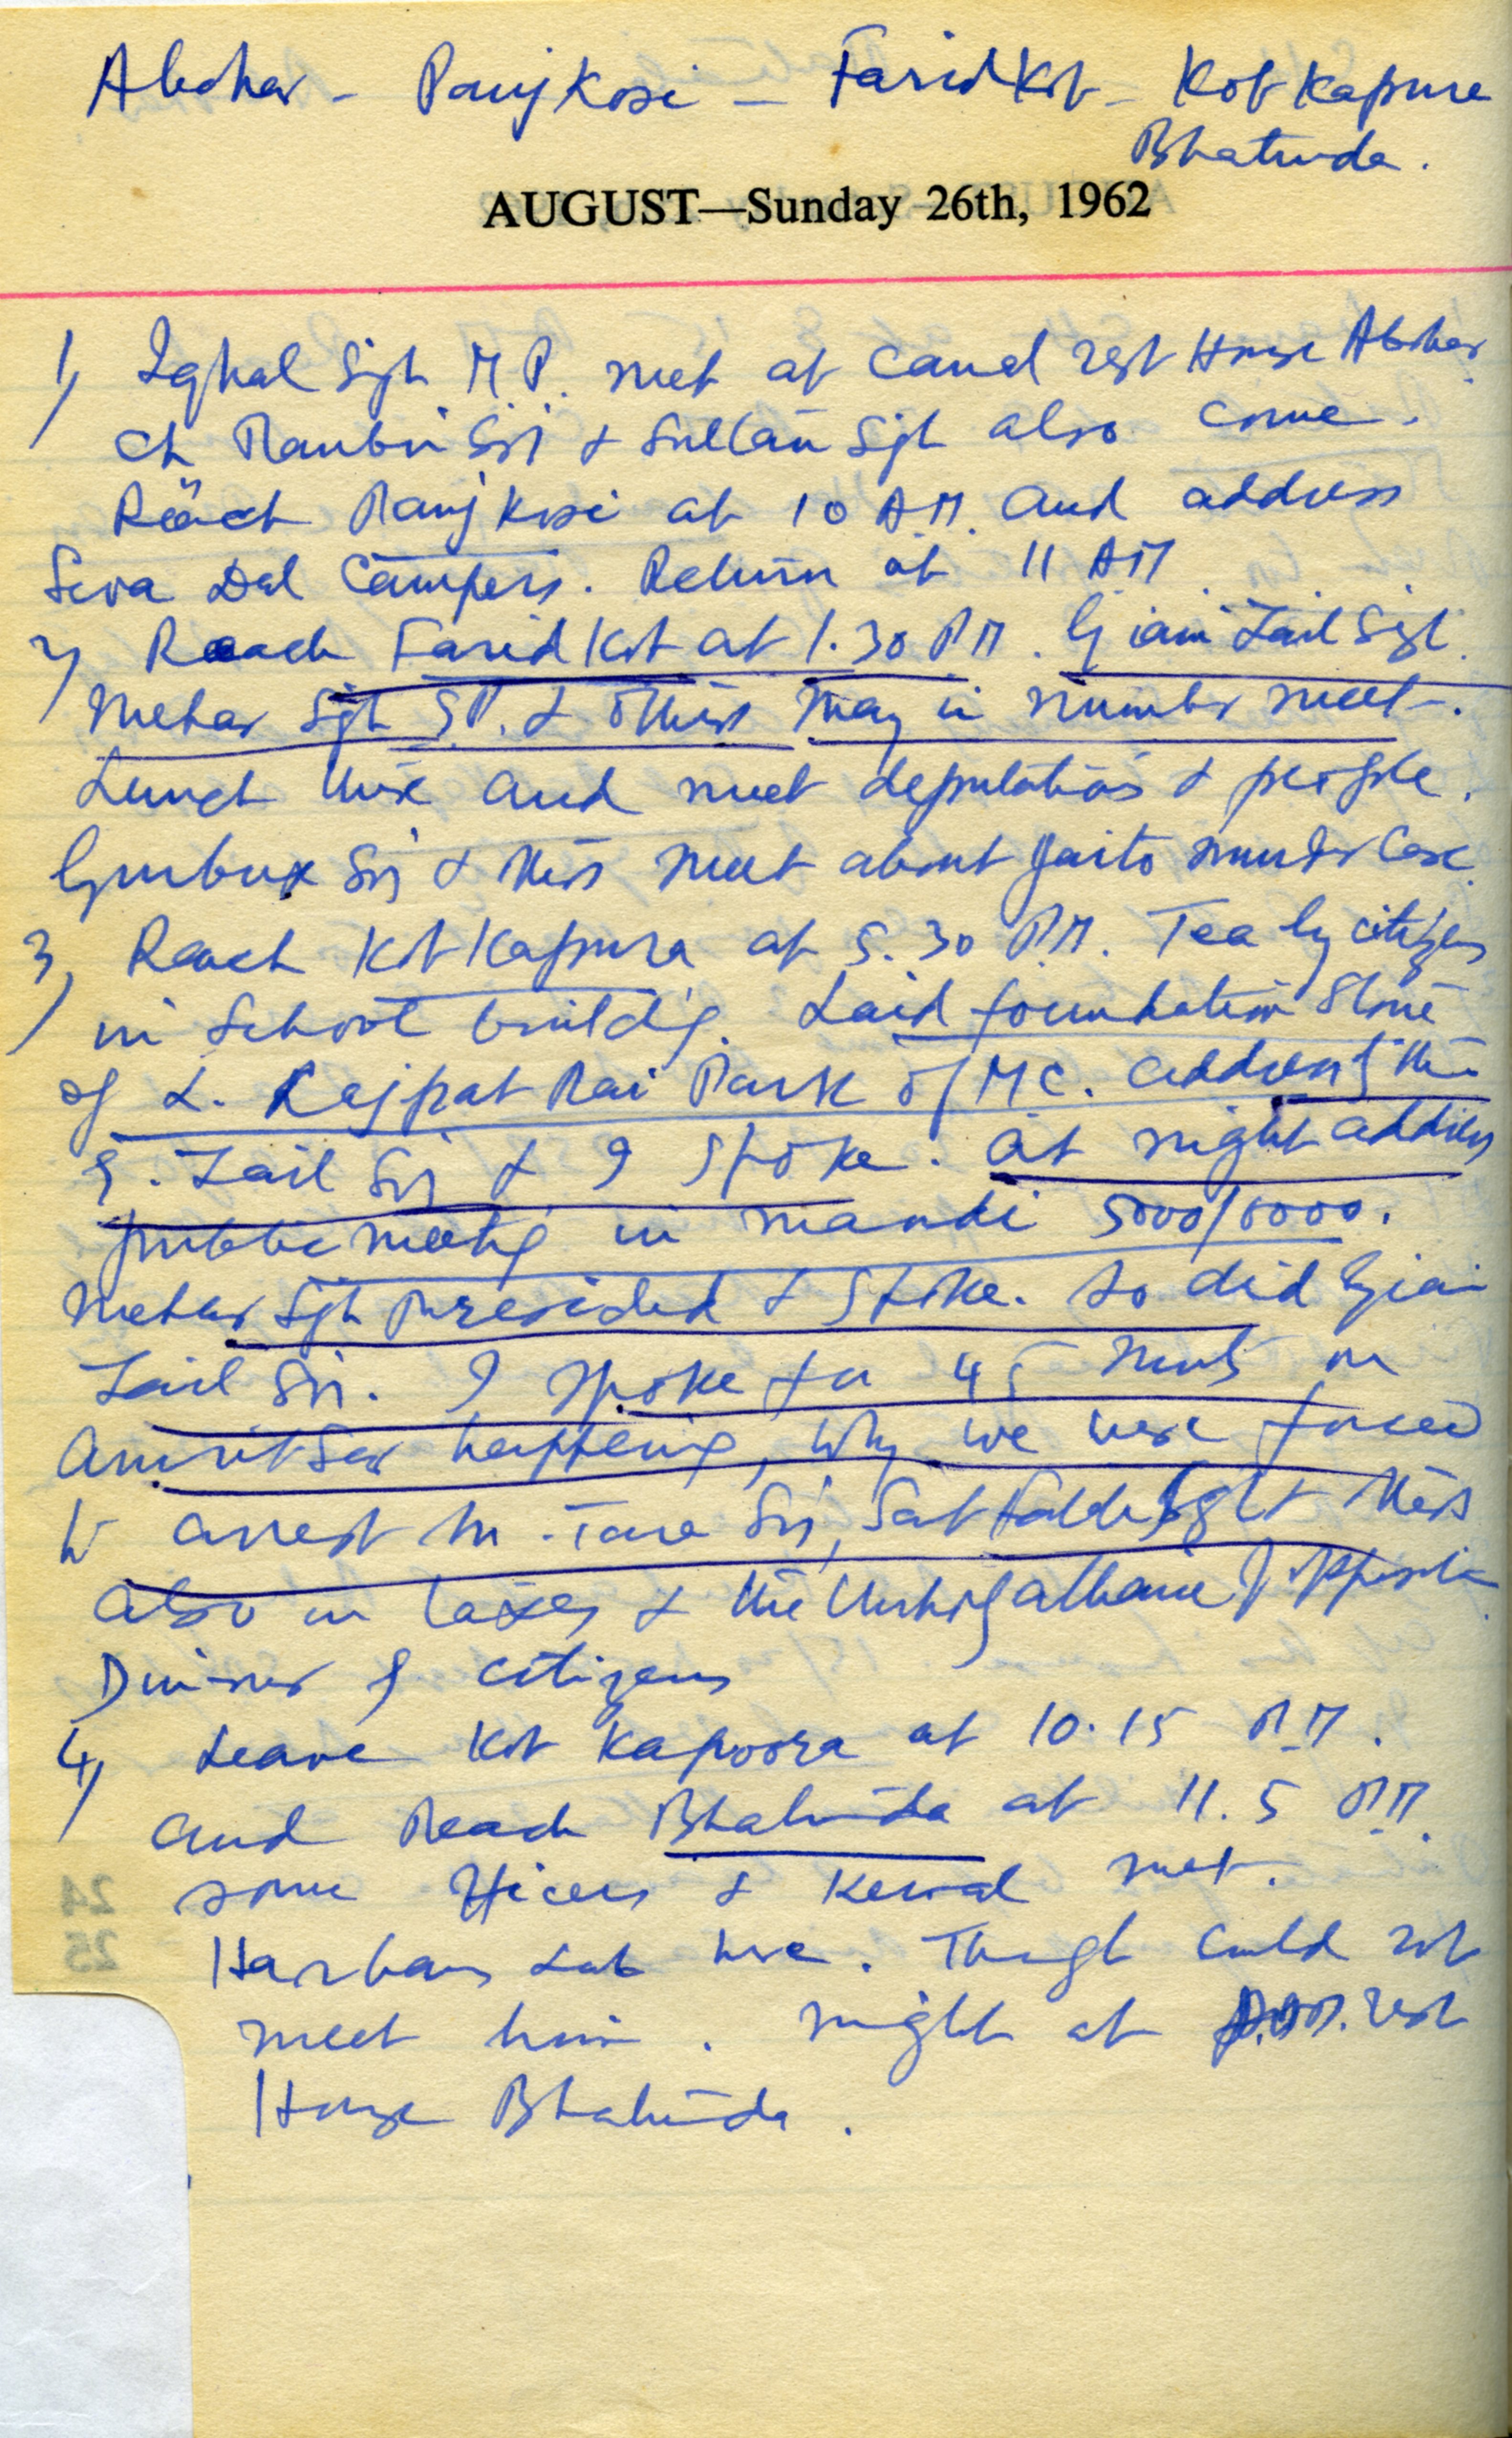 Abohar - Panj Kosi - Faridkot - Kot Kapura
Bhatinda.
AUGUST—Sunday 26th, 1962
1) Iqbal Sigh M.P. met at Canal rest House Abohar
Ch Ranbir Sij & Sultan Sgh also come.
Reach Panj Kosi at 10 A.M. and address
Seva Dal Campers. Return at 11 AM
2) Reach Faridkot at 1.30 P.M. Giani Zail Sigh
Mehar Sgh S.P. & others many in number meet.
Lunch there and meet deputations & people.
Gurbux Sij & others meet about Jaito murder case.
3) Reach Kot Kapura at 5.30 P.M. Tea by citizens
in School buildig. Laid foundation Stone
of L. Rajpat Rai Park of M C. address
G. Zail Sij & I spoke. at night address
public meetig in mandi 5000/6000.
Mehar Sgh presided & spoke. So did Giani
Zail Sij. I spoke for 45 minuts on
Amritsar happenig, why we were forced
to arrest M. Tara Sij, Sant Fateh Sgh & others
also on taxes & the Unholy alliance of opposition
Dinner of citizens
4) Leave Kot Kapoora at 10.15 P.M.
and Reach Bhatinda at 11.5 P.M.
some officers & Kewal met.
Harbans Lal here. Though could not
meet him. night at rest
House Bhatinda.
24
25